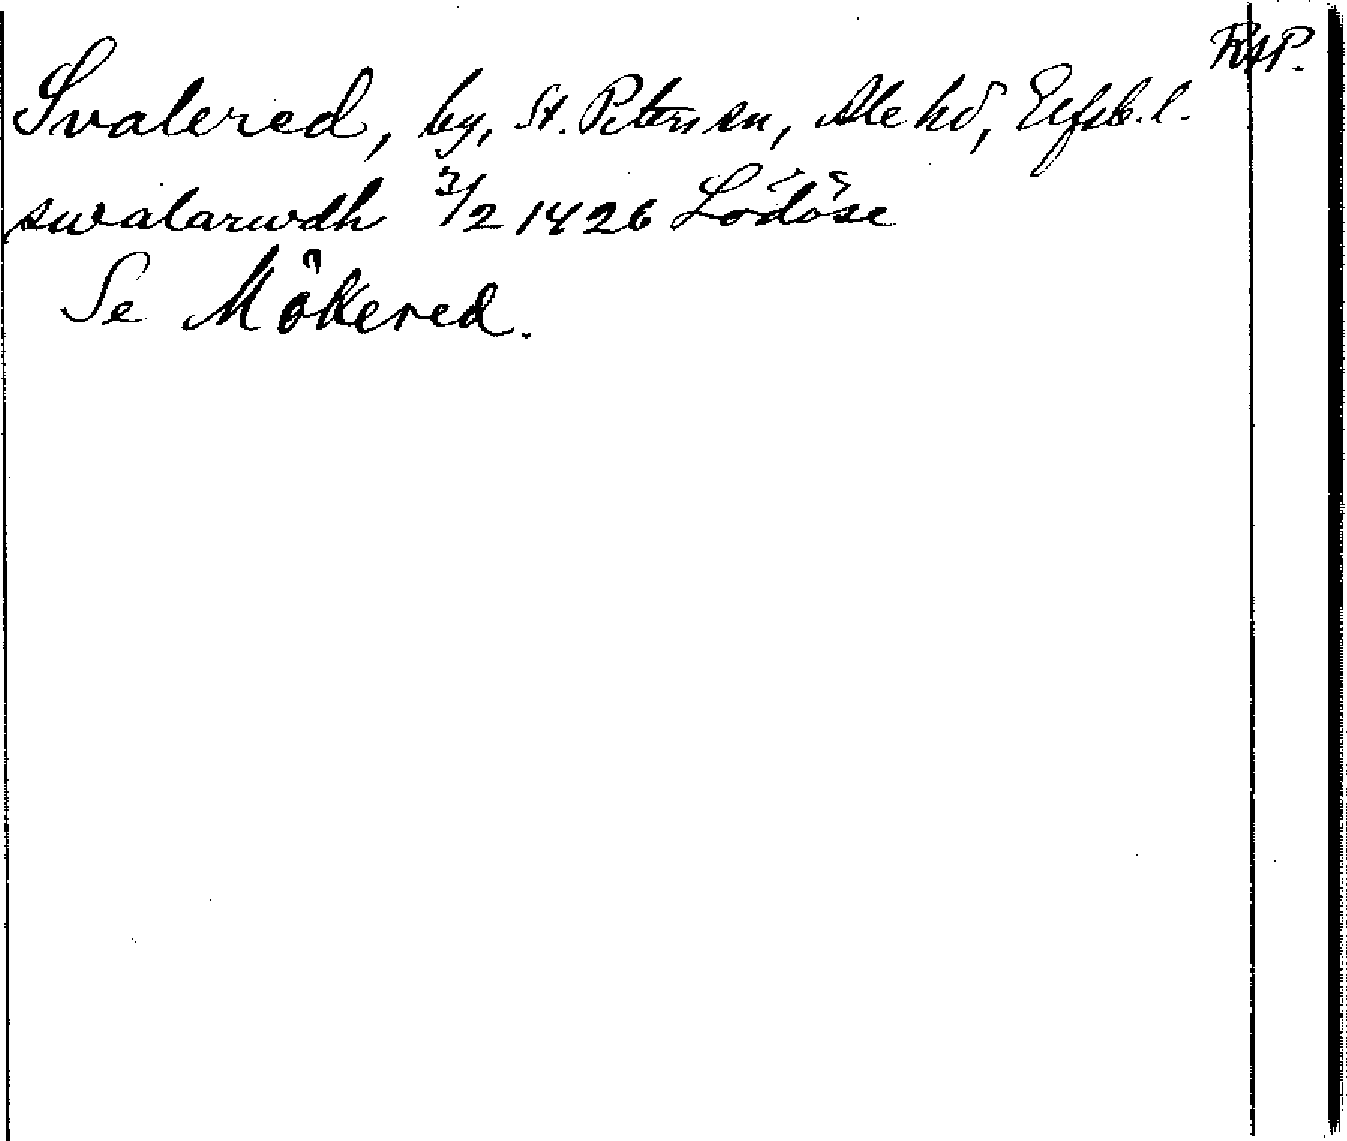 RAP.
Svalered, by, St. Peters sn, Ale hd, Elfsb. l.
swalarudh 3/2 1426 Lödöse
Se Mökered.